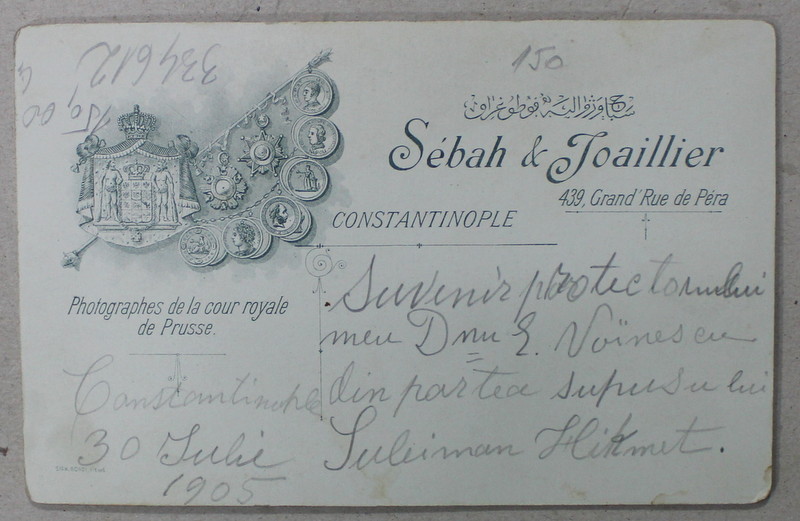 334612
150
150,00
سباح وژوالیه فوطوغراف
Sébah & Joaillier
439, Grand' Rue de Péra
CONSTANTINOPLE
Photographes de la cour royale
de Prusse.
Suvenir protectorului
meu Dnu E. Voïnescu
din partea supusului
Suleiman Hikmet.
Constantinople
30 Iulie
1905